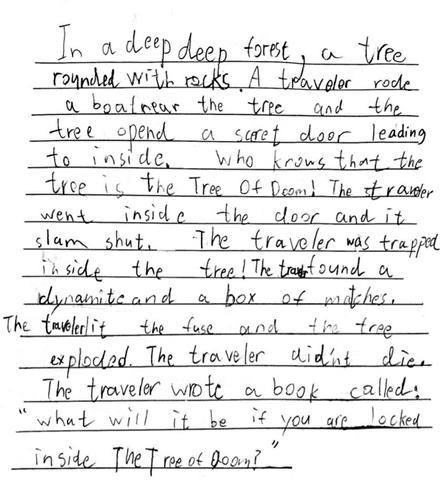 In a deep deep forest, a tree
rounded with rocks. A traveler rode
a boat near the tree and the
tree opend a scret door leading
to inside. Who knows that the
tree is the Tree Of Doom! The traveler
went inside the door and it
slam shut. The traveler was trapped
inside the tree! The trav found a
dynamite and a box of matches.
The traveler lit the fuse and the tree
exploded. The traveler did'nt die.
The traveler wrote a book called:
"what will it be if you are locked
inside The Tree of Doom?"